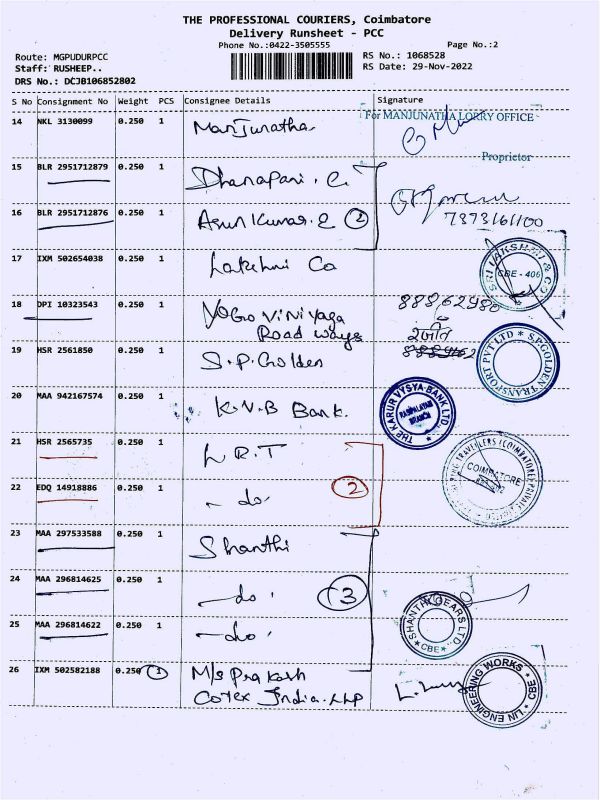 THE PROFESSIONAL COURIERS, Coimbatore
Delivery Runsheet - PCC
Phone No.:0422-3505555
Page No.:2
Route: MGPUDURPCC
RS No.: 1068528
Staff: RUSHEEP..
RS Date: 29-Nov-2022
DRS No.: DCJB106852802
S No Consignment No Weight PCS Consignee Details Signature
14 NKL 3130099 0.250 1 Manjunatha
For MANJUNATHA LORRY OFFICE
Proprietor
15 BLR 2951712879 0.250 1 Dhanapani. C.
16 BLR 2951712876 0.250 1 Arun Kumar. C 2
7373161100
17 IXM 502654038 0.250 1 Lakshmi Co
SRI LAKSHMI & CO
CBE - 406
18 DPI 10323543 0.250 1 Yogo Viniyaga
Road ways
888,62980
19 HSR 2561850 0.250 1 S.P. Golden
S.P.GOLDEN TRANSPORT PVT LTD
20 MAA 942167574 0.250 1 K.V.B Bank.
THE KARUR VYSYA BANK LTD.
BRANCH
21 HSR 2565735 0.250 1 L R. T
COIMBATORE
22 EDQ 14918886 0.250 1 - do. 2
23 MAA 297533588 0.250 1 Shanthi
24 MAA 296814625 0.250 1 - do. 3
25 MAA 296814622 0.250 1 - do.
SHANTHI GEARS LTD.
CBE
26 IXM 502582188 0.250 1 M/s Prakash
Cotex India. LLP
LIN ENGINEERING WORKS
CBE